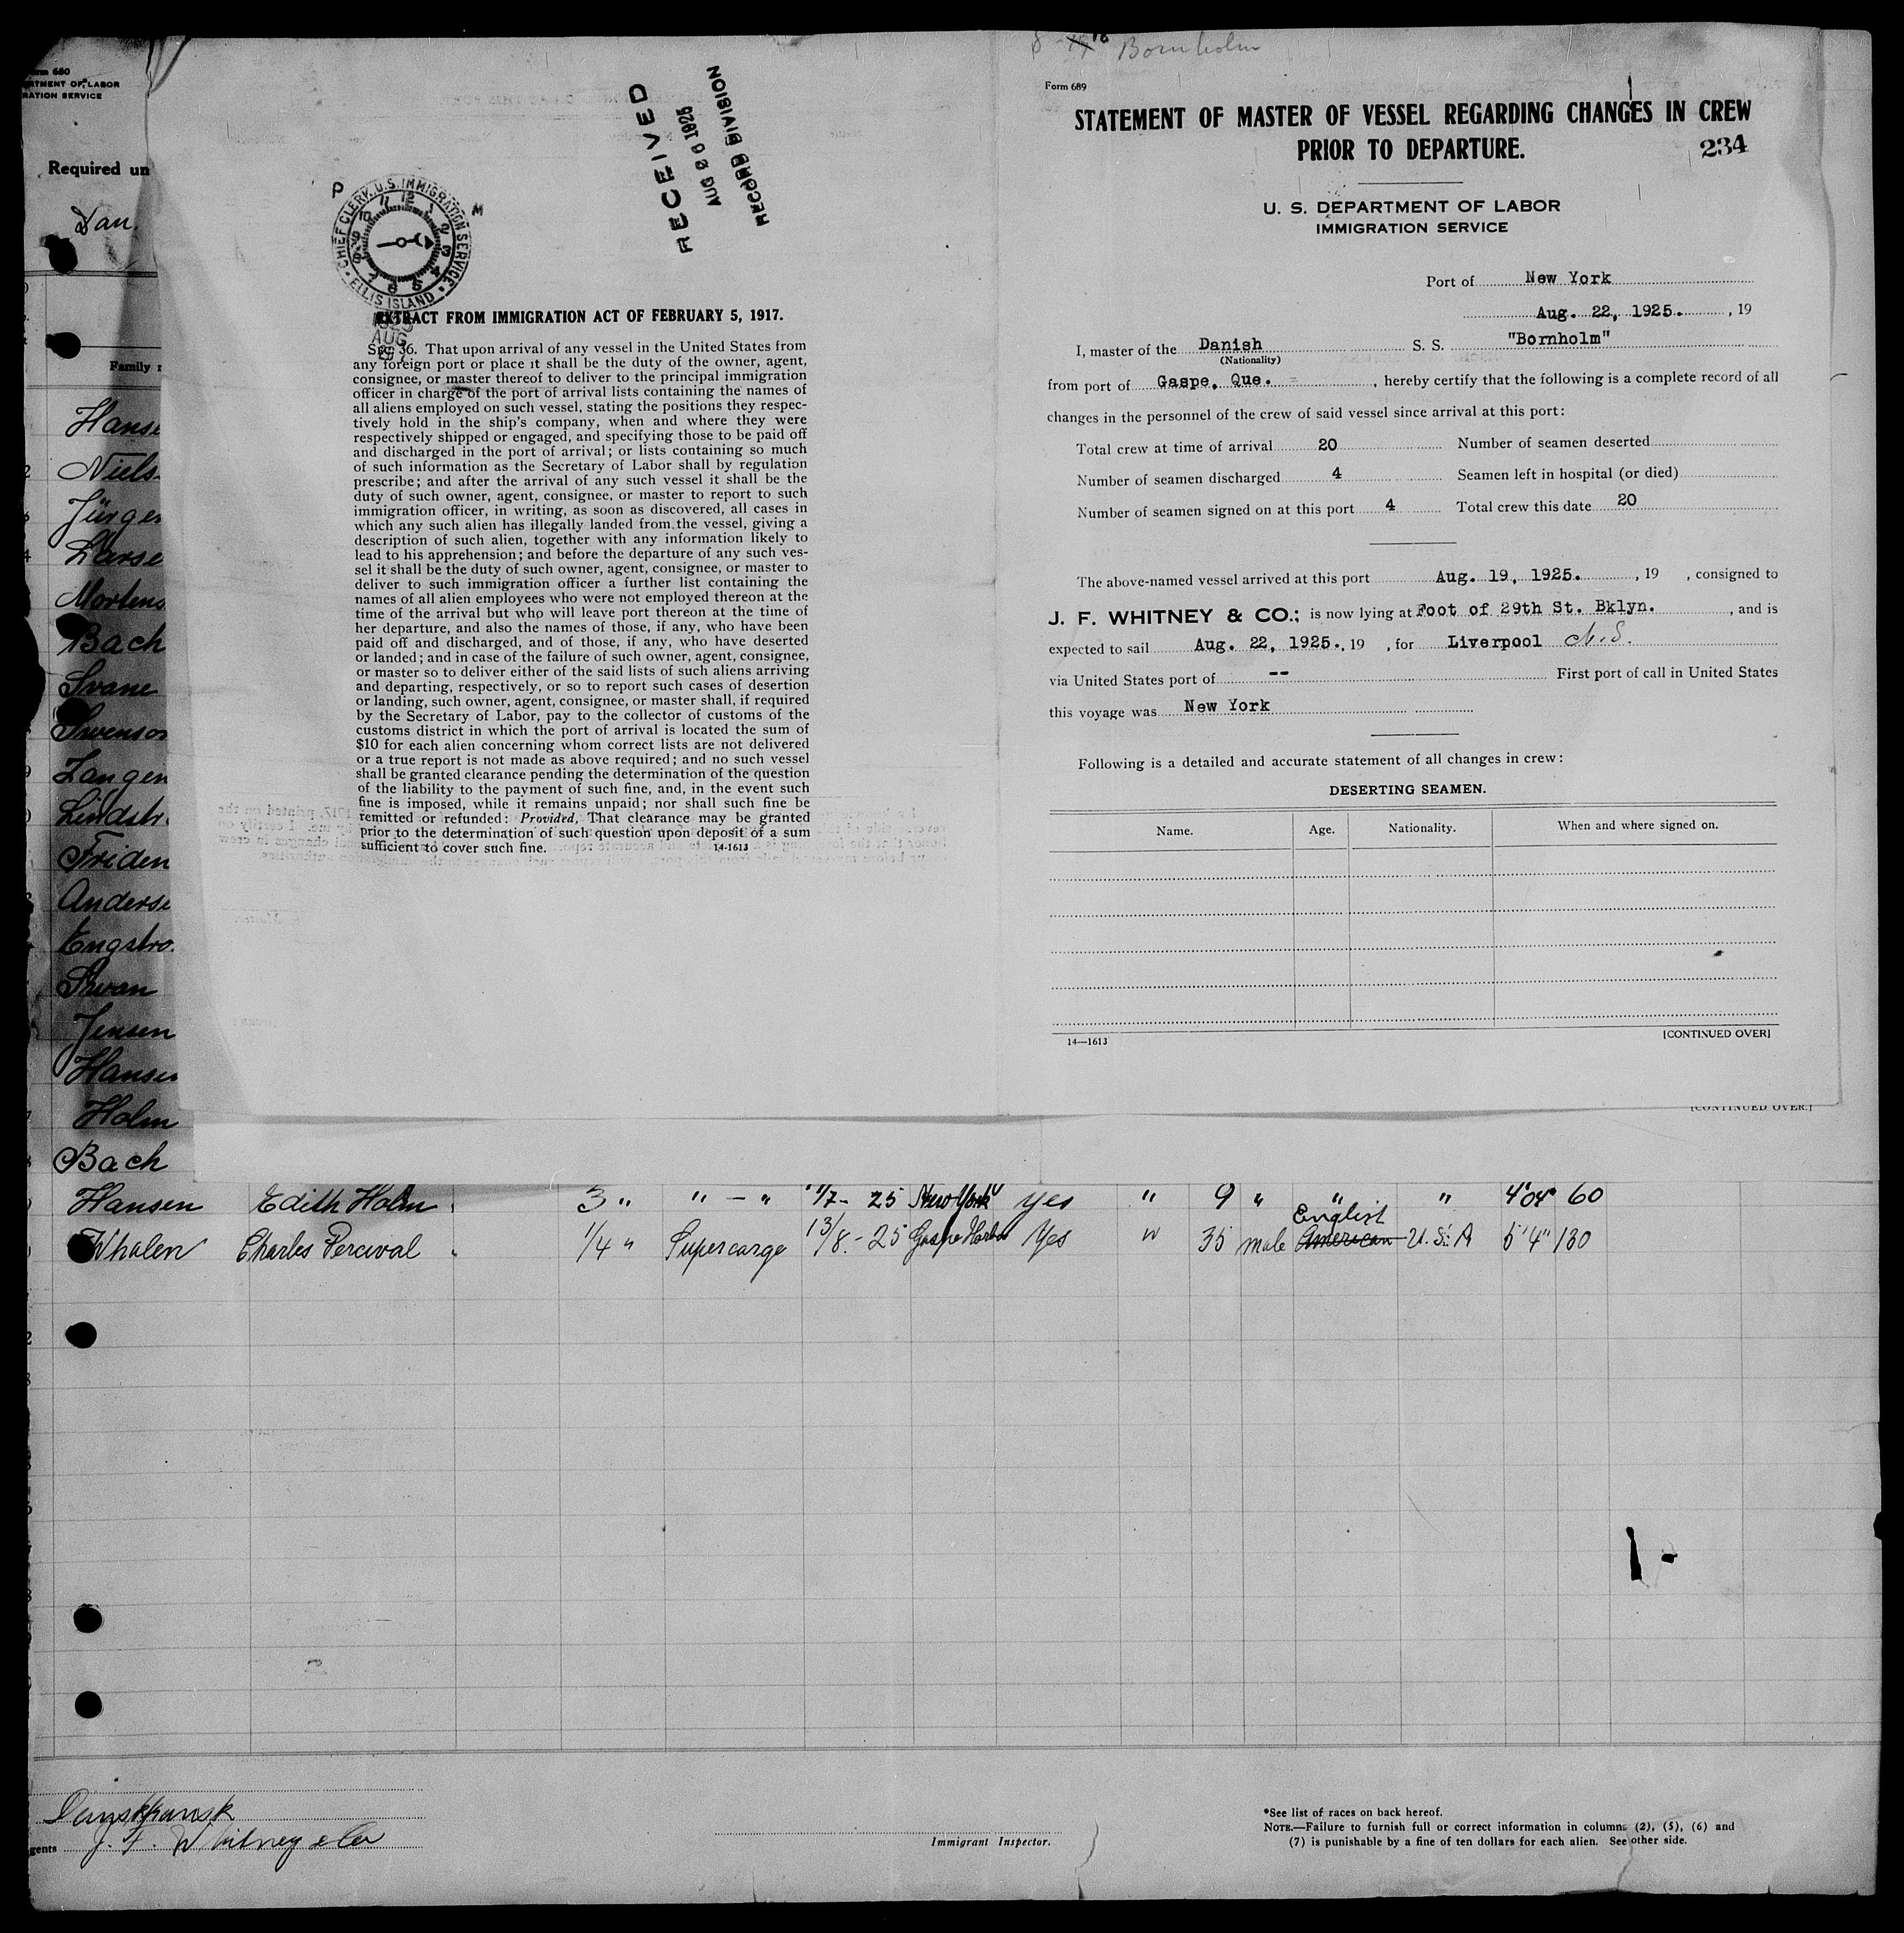 Bornholm
Form 689
STATEMENT OF MASTER OF VESSEL REGARDING CHANGES IN CREW
PRIOR TO DEPARTURE.
234
U. S. DEPARTMENT OF LABOR
IMMIGRATION SERVICE
Port of New York
Aug. 22, 1925. , 19
I, master of the Danish S. S. "Bornholm"
(Nationality)
from port of Gaspe, Que. , hereby certify that the following is a complete record of all
changes in the personnel of the crew of said vessel since arrival at this port:
Total crew at time of arrival 20 Number of seamen deserted
Number of seamen discharged 4 Seamen left in hospital (or died)
Number of seamen signed on at this port 4 Total crew this date 20
The above-named vessel arrived at this port Aug. 19, 1925. , 19 , consigned to
J. F. WHITNEY & CO.; is now lying at Foot of 29th St. Bklyn. , and is
expected to sail Aug. 22, 1925. , 19 , for Liverpool N.S.
via United States port of -- First port of call in United States
this voyage was New York
Following is a detailed and accurate statement of all changes in crew:
DESERTING SEAMEN.
Name. Age. Nationality. When and where signed on.
14—1613 [CONTINUED OVER]
[CONTINUED OVER.]
RECEIVED
AUG 26 1925
RECORD DIVISION
P M
CHIEF CLERK, U.S. IMMIGRATION SERVICE
ELLIS ISLAND
1925
AUG
EXTRACT FROM IMMIGRATION ACT OF FEBRUARY 5, 1917.
SEC. 36. That upon arrival of any vessel in the United States from
any foreign port or place it shall be the duty of the owner, agent,
consignee, or master thereof to deliver to the principal immigration
officer in charge of the port of arrival lists containing the names of
all aliens employed on such vessel, stating the positions they respec-
tively hold in the ship's company, when and where they were
respectively shipped or engaged, and specifying those to be paid off
and discharged in the port of arrival; or lists containing so much
of such information as the Secretary of Labor shall by regulation
prescribe; and after the arrival of any such vessel it shall be the
duty of such owner, agent, consignee, or master to report to such
immigration officer, in writing, as soon as discovered, all cases in
which any such alien has illegally landed from the vessel, giving a
description of such alien, together with any information likely to
lead to his apprehension; and before the departure of any such ves-
sel it shall be the duty of such owner, agent, consignee, or master to
deliver to such immigration officer a further list containing the
names of all alien employees who were not employed thereon at the
time of the arrival but who will leave port thereon at the time of
her departure, and also the names of those, if any, who have been
paid off and discharged, and of those, if any, who have deserted
or landed; and in case of the failure of such owner, agent, consignee,
or master so to deliver either of the said lists of such aliens arriving
and departing, respectively, or so to report such cases of desertion
or landing, such owner, agent, consignee, or master shall, if required
by the Secretary of Labor, pay to the collector of customs of the
customs district in which the port of arrival is located the sum of
$10 for each alien concerning whom correct lists are not delivered
or a true report is not made as above required; and no such vessel
shall be granted clearance pending the determination of the question
of the liability to the payment of such fine, and, in the event such
fine is imposed, while it remains unpaid; nor shall such fine be
remitted or refunded: Provided, That clearance may be granted
prior to the determination of such question upon deposit of a sum
sufficient to cover such fine.
14-1613
rm 680
RTMENT OF LABOR
RATION SERVICE
Required un
Dan.
Family
Hanse
Niels
Jürge
Larse
Mortens
Bach
Svane
Swenson
Langen
Lindstr
Friden
Anderse
Engstro
Swan
Jensen
Hansen
Holm
Bach
Hansen Edith Holm 3 " " - " 1/7 - 25 New York yes " 9 " " " 4'04" 60
English
Whalen Charles Percival 1/4 " Supercargo 13/8 - 25 Gaspe Harbor Yes " 35 male American U.S.A 5'4" 130
gents J. F. Whitney & Co
Immigrant Inspector.
*See list of races on back hereof.
NOTE.—Failure to furnish full or correct information in columns (2), (5), (6) and
(7) is punishable by a fine of ten dollars for each alien. See other side.